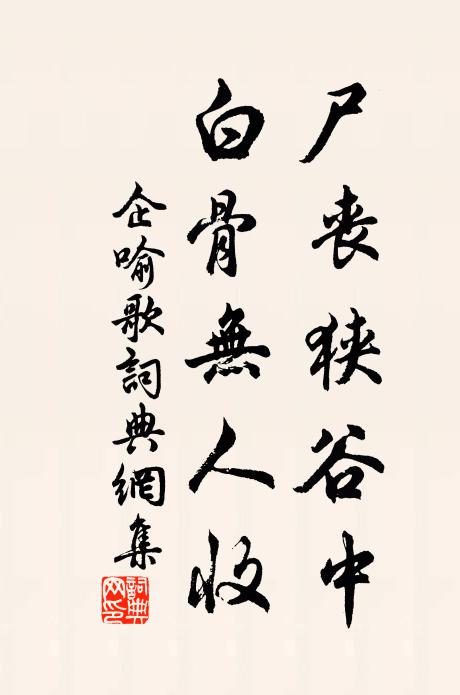 尸喪狹谷中
白骨無人收
企喻歌詞典網集
詞典網印